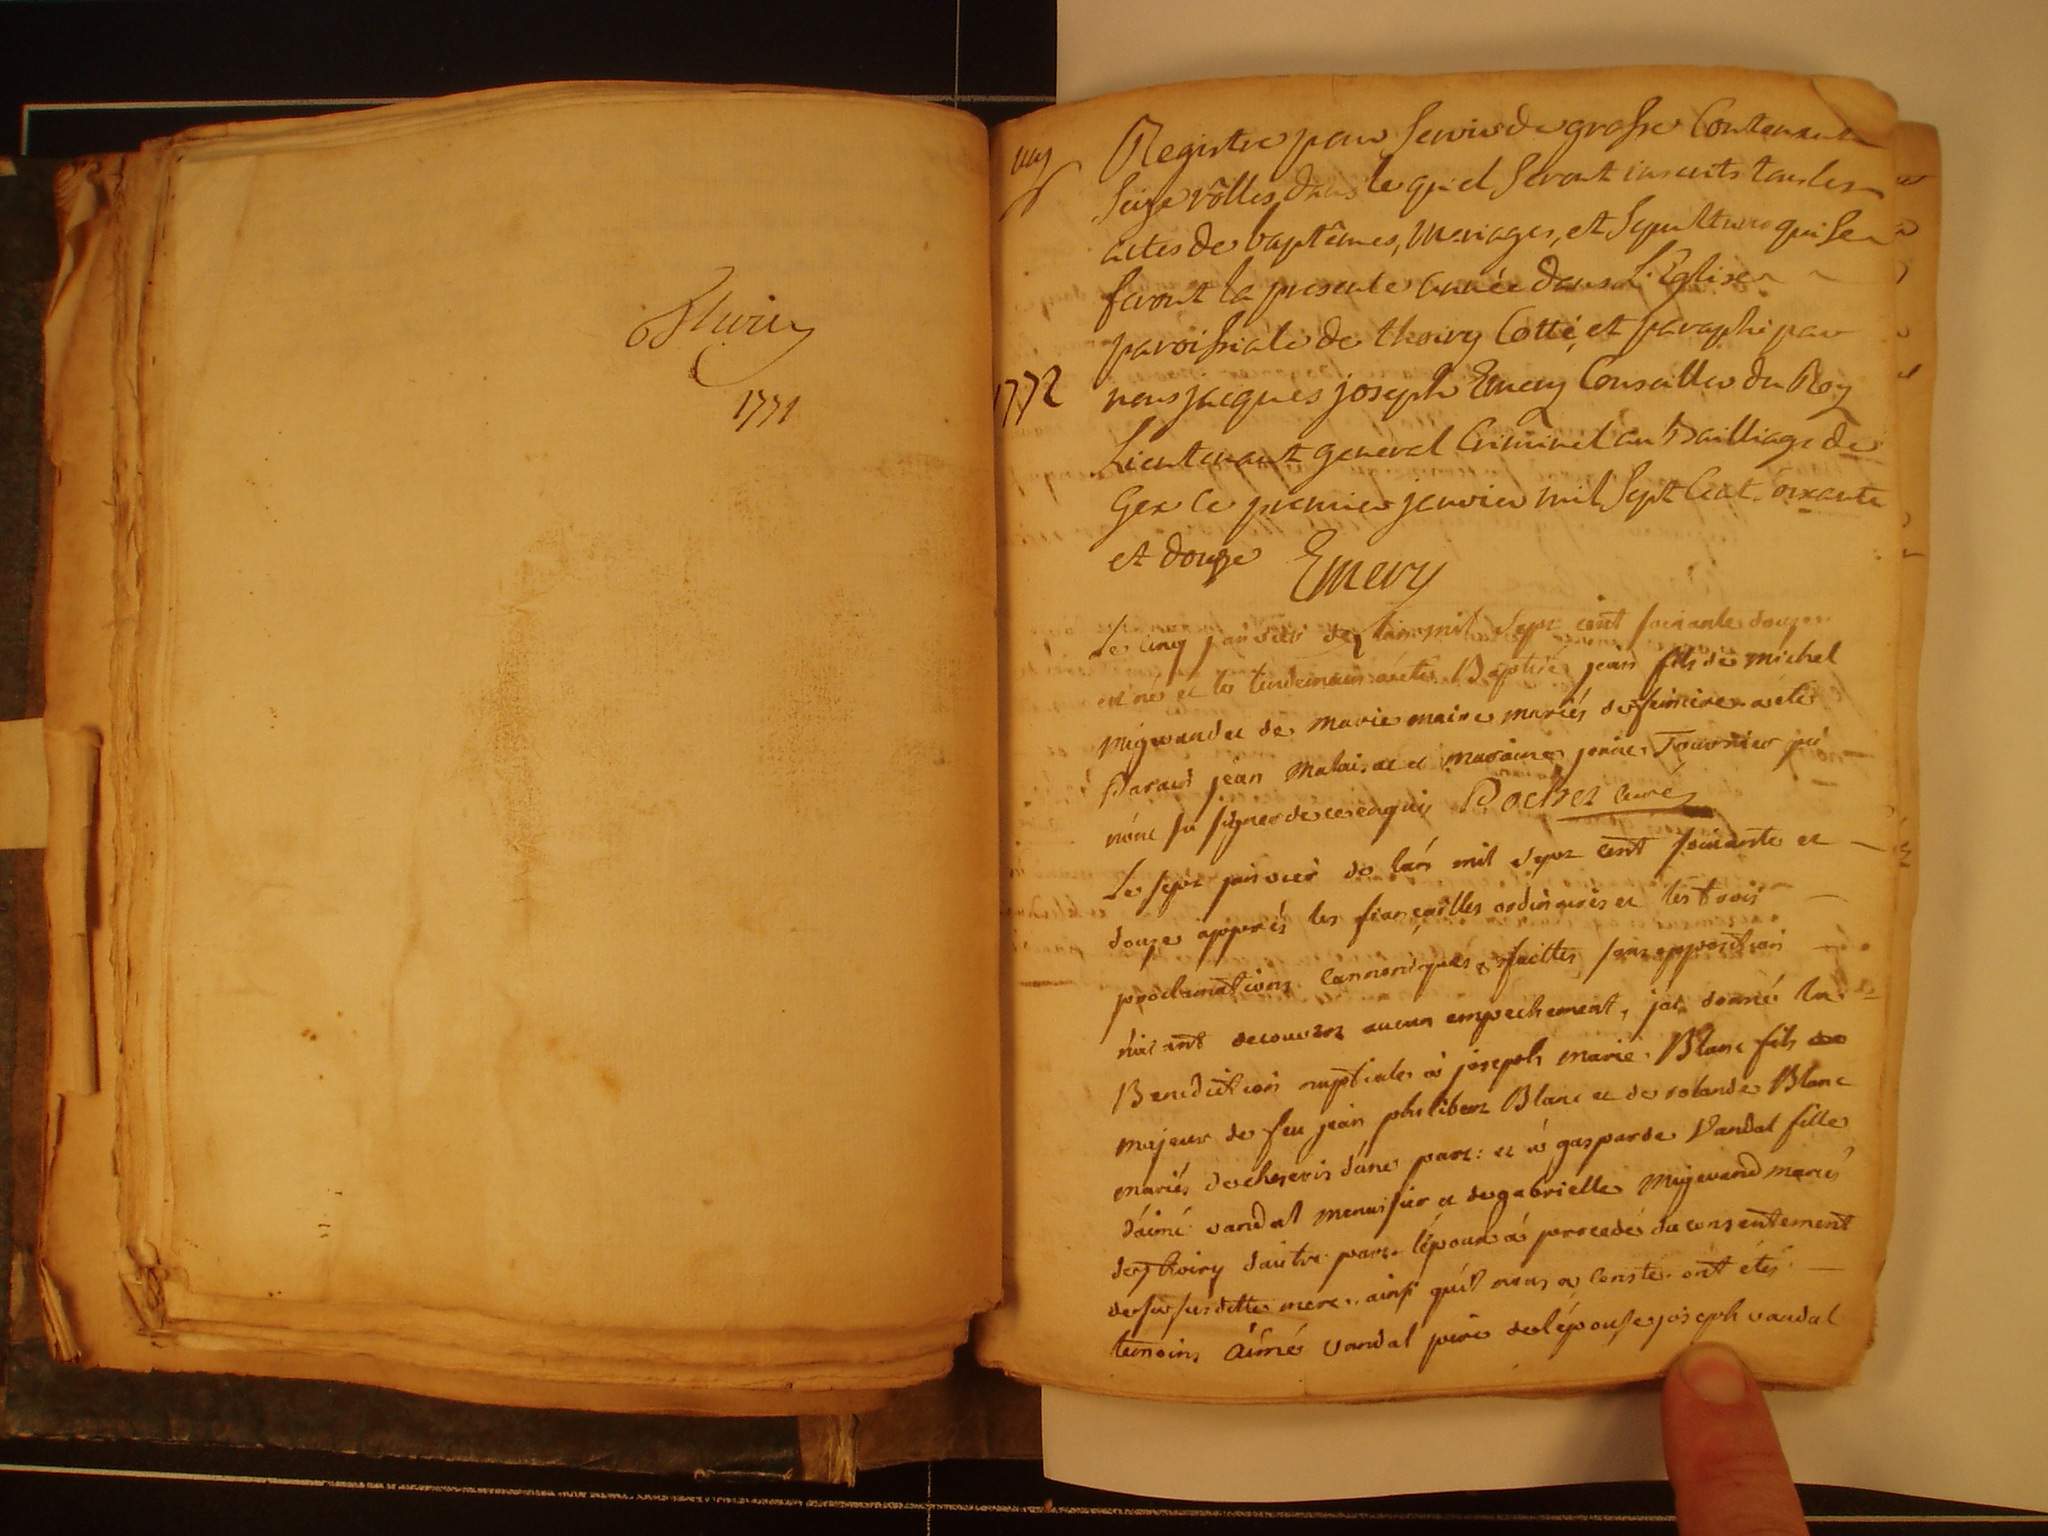 Thoiry
1771
1772
Registre pour servir de grosse Contenant
Seize rôlles dans lequel seront inscrits tous les
actes de baptêmes, Mariages, et Sepultures qui se
feront la presente année dans L'Eglise
paroissiale de thoiry Cotté, et paraphé par
nous jacques joseph Emery Conseiller du Roy
Lieutenant general Criminel au Bailliage de
Gex ce premier janvier mil Sept Cent soixante
et douze Emery
Le cinq janvier de l'an mil sept cent soixante douze
est né et le lendemain a été Baptisé jean fils de michel
migevand et de marie maire mariés de fenieres a été
Parain jean et maraine Fournier qui
n'ont su signer de ce enquis Pochet curé
Le sept janvier de l'an mil sept cent soixante et
douze apprés les fiançailles ordinaires et les trois
proclamations cannoniques faittes sans opposition
n'aiant decouvert aucun empechement, j'ai donné la
Benediction nuptiale à joseph marie Blanc fils
majeur de feu jean philibert Blanc et de rolande Blanc
mariés de cheseris d'une part: et à gasparde Vandal fille
d'aimé vandal menuisier et de gabrielle migevand mariés
de thoiry d'autre part. l'époux a procedé du consentement
de sa susditte mere. ainsi qu'il nous a consté. ont étés
temoins Aimé Vandal pere de l'épouse joseph vandal